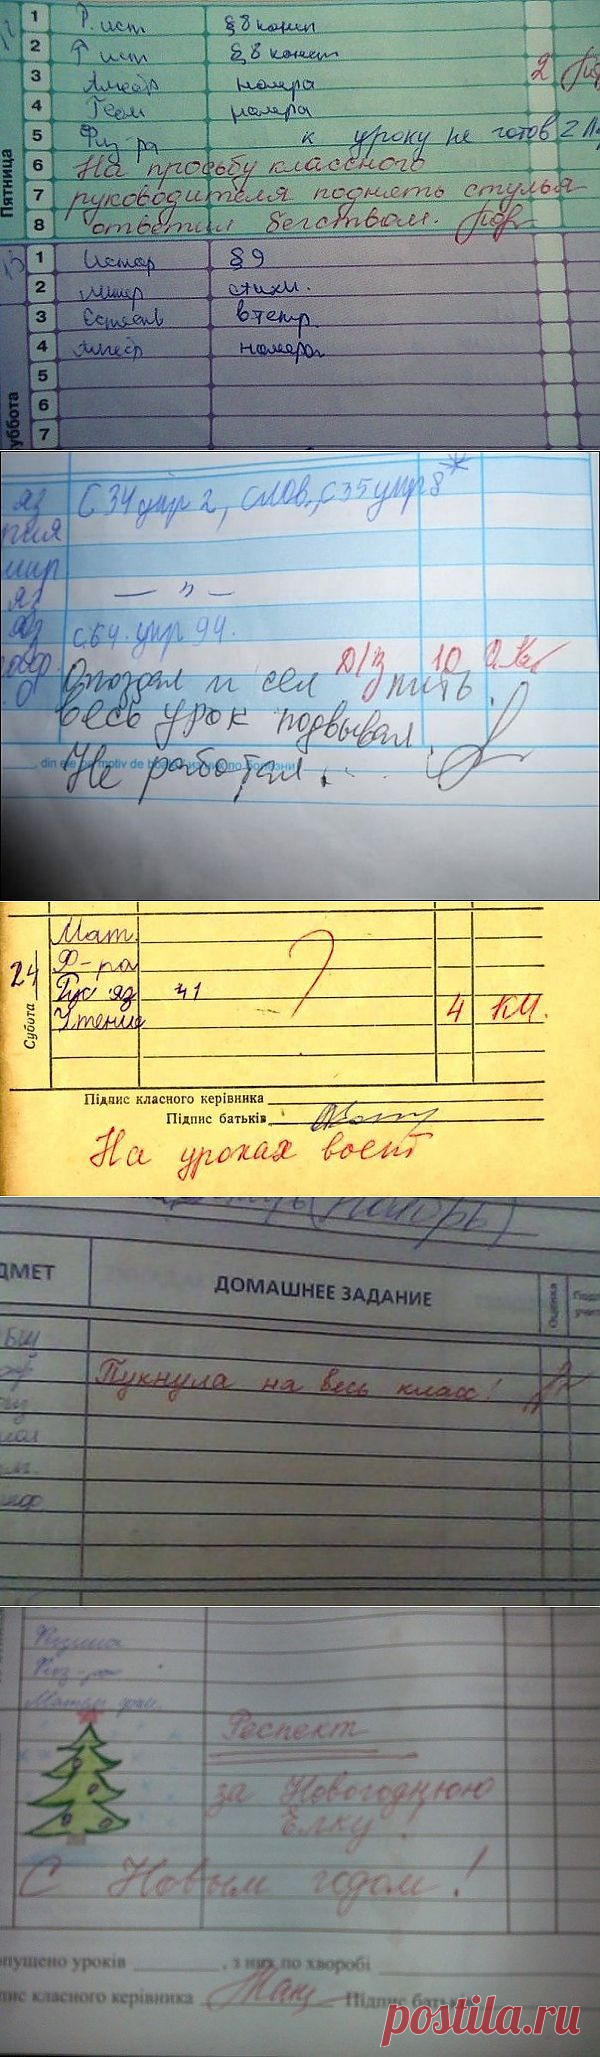 1 Р. ист § 8 консп
2 Р ист § 8 консп
3 Алгебр номера 2
4 Геом номера
5 Физ-ра к уроку не готов 2
Пятница
6 На просьбу классного
7 руководителя поднять стулья
8 ответил бегством.
1 Истор § 9
2 Литер стихи.
3 Естеств в тетр.
4 Алгебр номера
5
6
7
уббота
яз С 34 упр 2, слов., С 35 упр 8*
мир
яз — " —
яз с. 64. упр 94.
Д/з 10
Опоздал и сел пить.
весь урок подвывал.
Не работал.
din ele pe motiv de
Мат.
Ф-ра
24 Рус яз 41
Чтение 4
Субота
Підпис класного керівника
Підпис батьків
На уроках воет
ДМЕТ ДОМАШНЕЕ ЗАДАНИЕ Оценка
Пукнула на весь класс!
Физика
Физ-ра
Респект
за Новогоднюю
Ёлку!
С Новым годом!
опущено уроків , з них по хворобі
пис класного керівника Підпис батьків
postila.ru